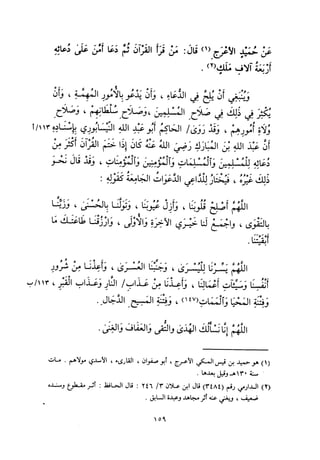 عَنْ حُمَيْدٍ الأَعْرَجِ (١) قَالَ: مَنْ قَرَأَ القُرْآنَ ثُمَّ دَعَا أَمَّنَ عَلَىٰ دُعَائِهِ
أَرْبَعَةُ آلافِ مَلَكٍ(٢).
وَيَنْبَغِي أَنْ يُلِحَّ فِي الدُّعَاءِ ، وَأَنْ يَدْعُوَ بِالأُمُورِ المُهِمَّةِ ، وَأَنْ
يُكْثِرَ فِي ذَلِكَ فِي صَلَاحِ المُسْلِمِينَ ، وَصَلَاحِ سُلْطَانِهِمْ ، وَصَلَاحِ
وُلَاةِ أُمُورِهِمْ ، وَقَدْ رَوَى/ الحَاكِمُ أَبُو عَبْدِ اللهِ النَّيْسَابُورِي بِإِسْنَادِهِ ١١٣/أ
أَنَّ عَبْدَ اللهِ بْنَ المُبَارَكِ رَضِيَ اللهُ عَنْهُ كَانَ إِذَا خَتَمَ القُرْآنَ أَكْثَرَ مِنْ
دُعَائِهِ لِلْمُسْلِمِينَ وَالمُسْلِمَاتِ وَالمُؤْمِنِينَ وَالمُؤْمِنَاتِ ، وَقَدْ قَالَ نَحْوَ
ذَلِكَ غَيْرُهُ ، فَيَخْتَارُ لِلدَّاعِي الدَّعَوَاتِ الجَامِعَةَ كَقَوْلِهِ :
اللَّهُمَّ أَصْلِحْ قُلُوبَنَا ، وَأَزِلْ عُيُوبَنَا ، وَتَوَلَّنَا بِالحُسْنَى ، وَزَيِّنَّا
بِالتَّقْوَى ، وَاجْمَعْ لَنَا خَيْرَيِ الآخِرَةِ وَالأُولَى ، وَارْزُقْنَا طَاعَتَكَ مَا
أَبْقَيْتَنَا.
اللَّهُمَّ يَسِّرْنَا لِلْيُسْرَى ، وَجَنِّبْنَا العُسْرَى ، وَأَعِذْنَا مِنْ شُرُورِ
أَنْفُسِنَا وَسَيِّئَاتِ أَعْمَالِنَا ، وَأَعِذْنَا مِنْ عَذَابِ/ النَّارِ وَعَذَابِ القَبْرِ ، ١١٣/ب
وَفِتْنَةِ المَحْيَا وَالمَمَاتِ(١٤٧) ، وَفِتْنَةِ المَسِيحِ الدَّجَّالِ.
اللَّهُمَّ إِنَّا نَسْأَلُكَ الهُدَى وَالتُّقَى وَالعَفَافَ وَالغِنَى.
(١) هو حميد بن قيس المكي الأعرج ، أبو صفوان ، القارىء ، الأسدي مولاهم . مات
سنة ١٣٠هـ وقيل بعدها .
(٢) الدارمي رقم (٣٤٨٤) قال ابن علان ٣/ ٢٤٦ : قال الحافظ : أثر مقطوع وسنده
ضعيف ، ويغني عنه أثر مجاهد وعبدة السابق .
١٥٩